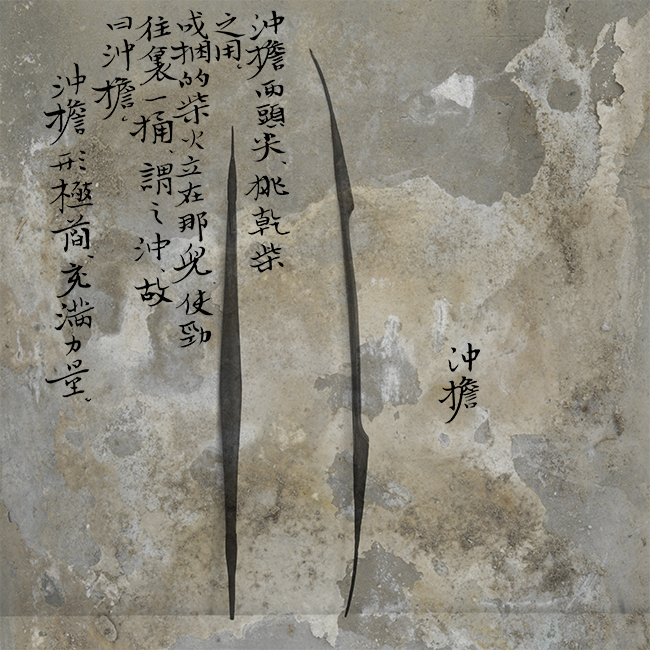 沖擔
沖擔両頭尖、挑乾柴
之用。
成捆的柴火立在那兒、使勁
往裏一捅、謂之沖、故
曰沖擔。
沖擔形極簡、充滿力量。